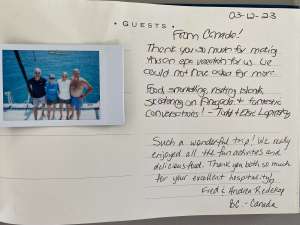 03-12-23
• GUESTS •
From Canada!
Thank you so much for making
this an epic vacation for us. We
could not have asked for more
Food, snorkeling, visiting islands
on Anegada + fantastic
conversations! -
Such a wonderful trip! We really
enjoyed all the fun activities and
delicious food. Thank you both so much
for your excellent hospitality!
Fred & Andrea Redekop
BC - Canada